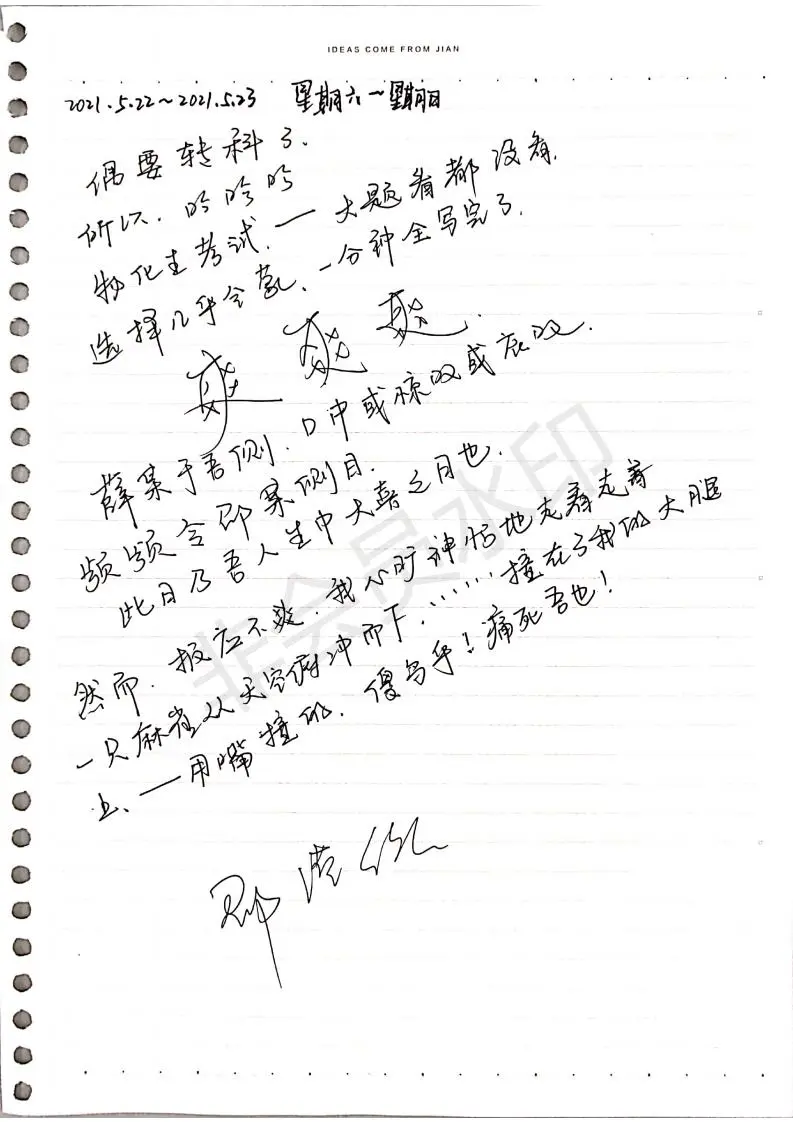 IDEAS COME FROM JIAN
2021.5.22~2021.5.23 星期六~星期日
偶要转科了.
所以.哈哈哈
物化生考试.一大题看都没看.
选择几乎全蒙、一分钟全写完了.
爽爽爽.
薛某于吾侧.口中或惊叹或哀叹.
频频令邱某侧目.
此日乃吾人生中大喜之日也.
然而.报应不爽.我心旷神怡地走着走着
一只麻雀从天空俯冲而下.……撞在了我的大腿
上、一用嘴撞的.傻鸟乎！痛死吾也！
非会员水印